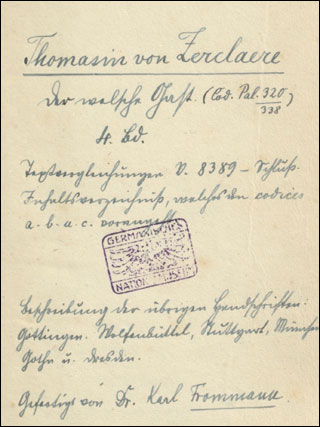 Thomasin von Zerclaere
der welsche Gast. (Cod. Pal. 320/338)
4. Bd.
Textvergleichungen V. 8389 – Schluß.
Inhaltsverzeichniß, welches den codices
a. b. u. c. vorangeht
GERMANISCHES
NATIONALMUSEUM
Beschreibung der übrigen Handschriften.
Göttingen. Wolfenbüttel, Stuttgart, München
Gotha u. Dresden.
Gefertigt von Dr. Karl Frommann.